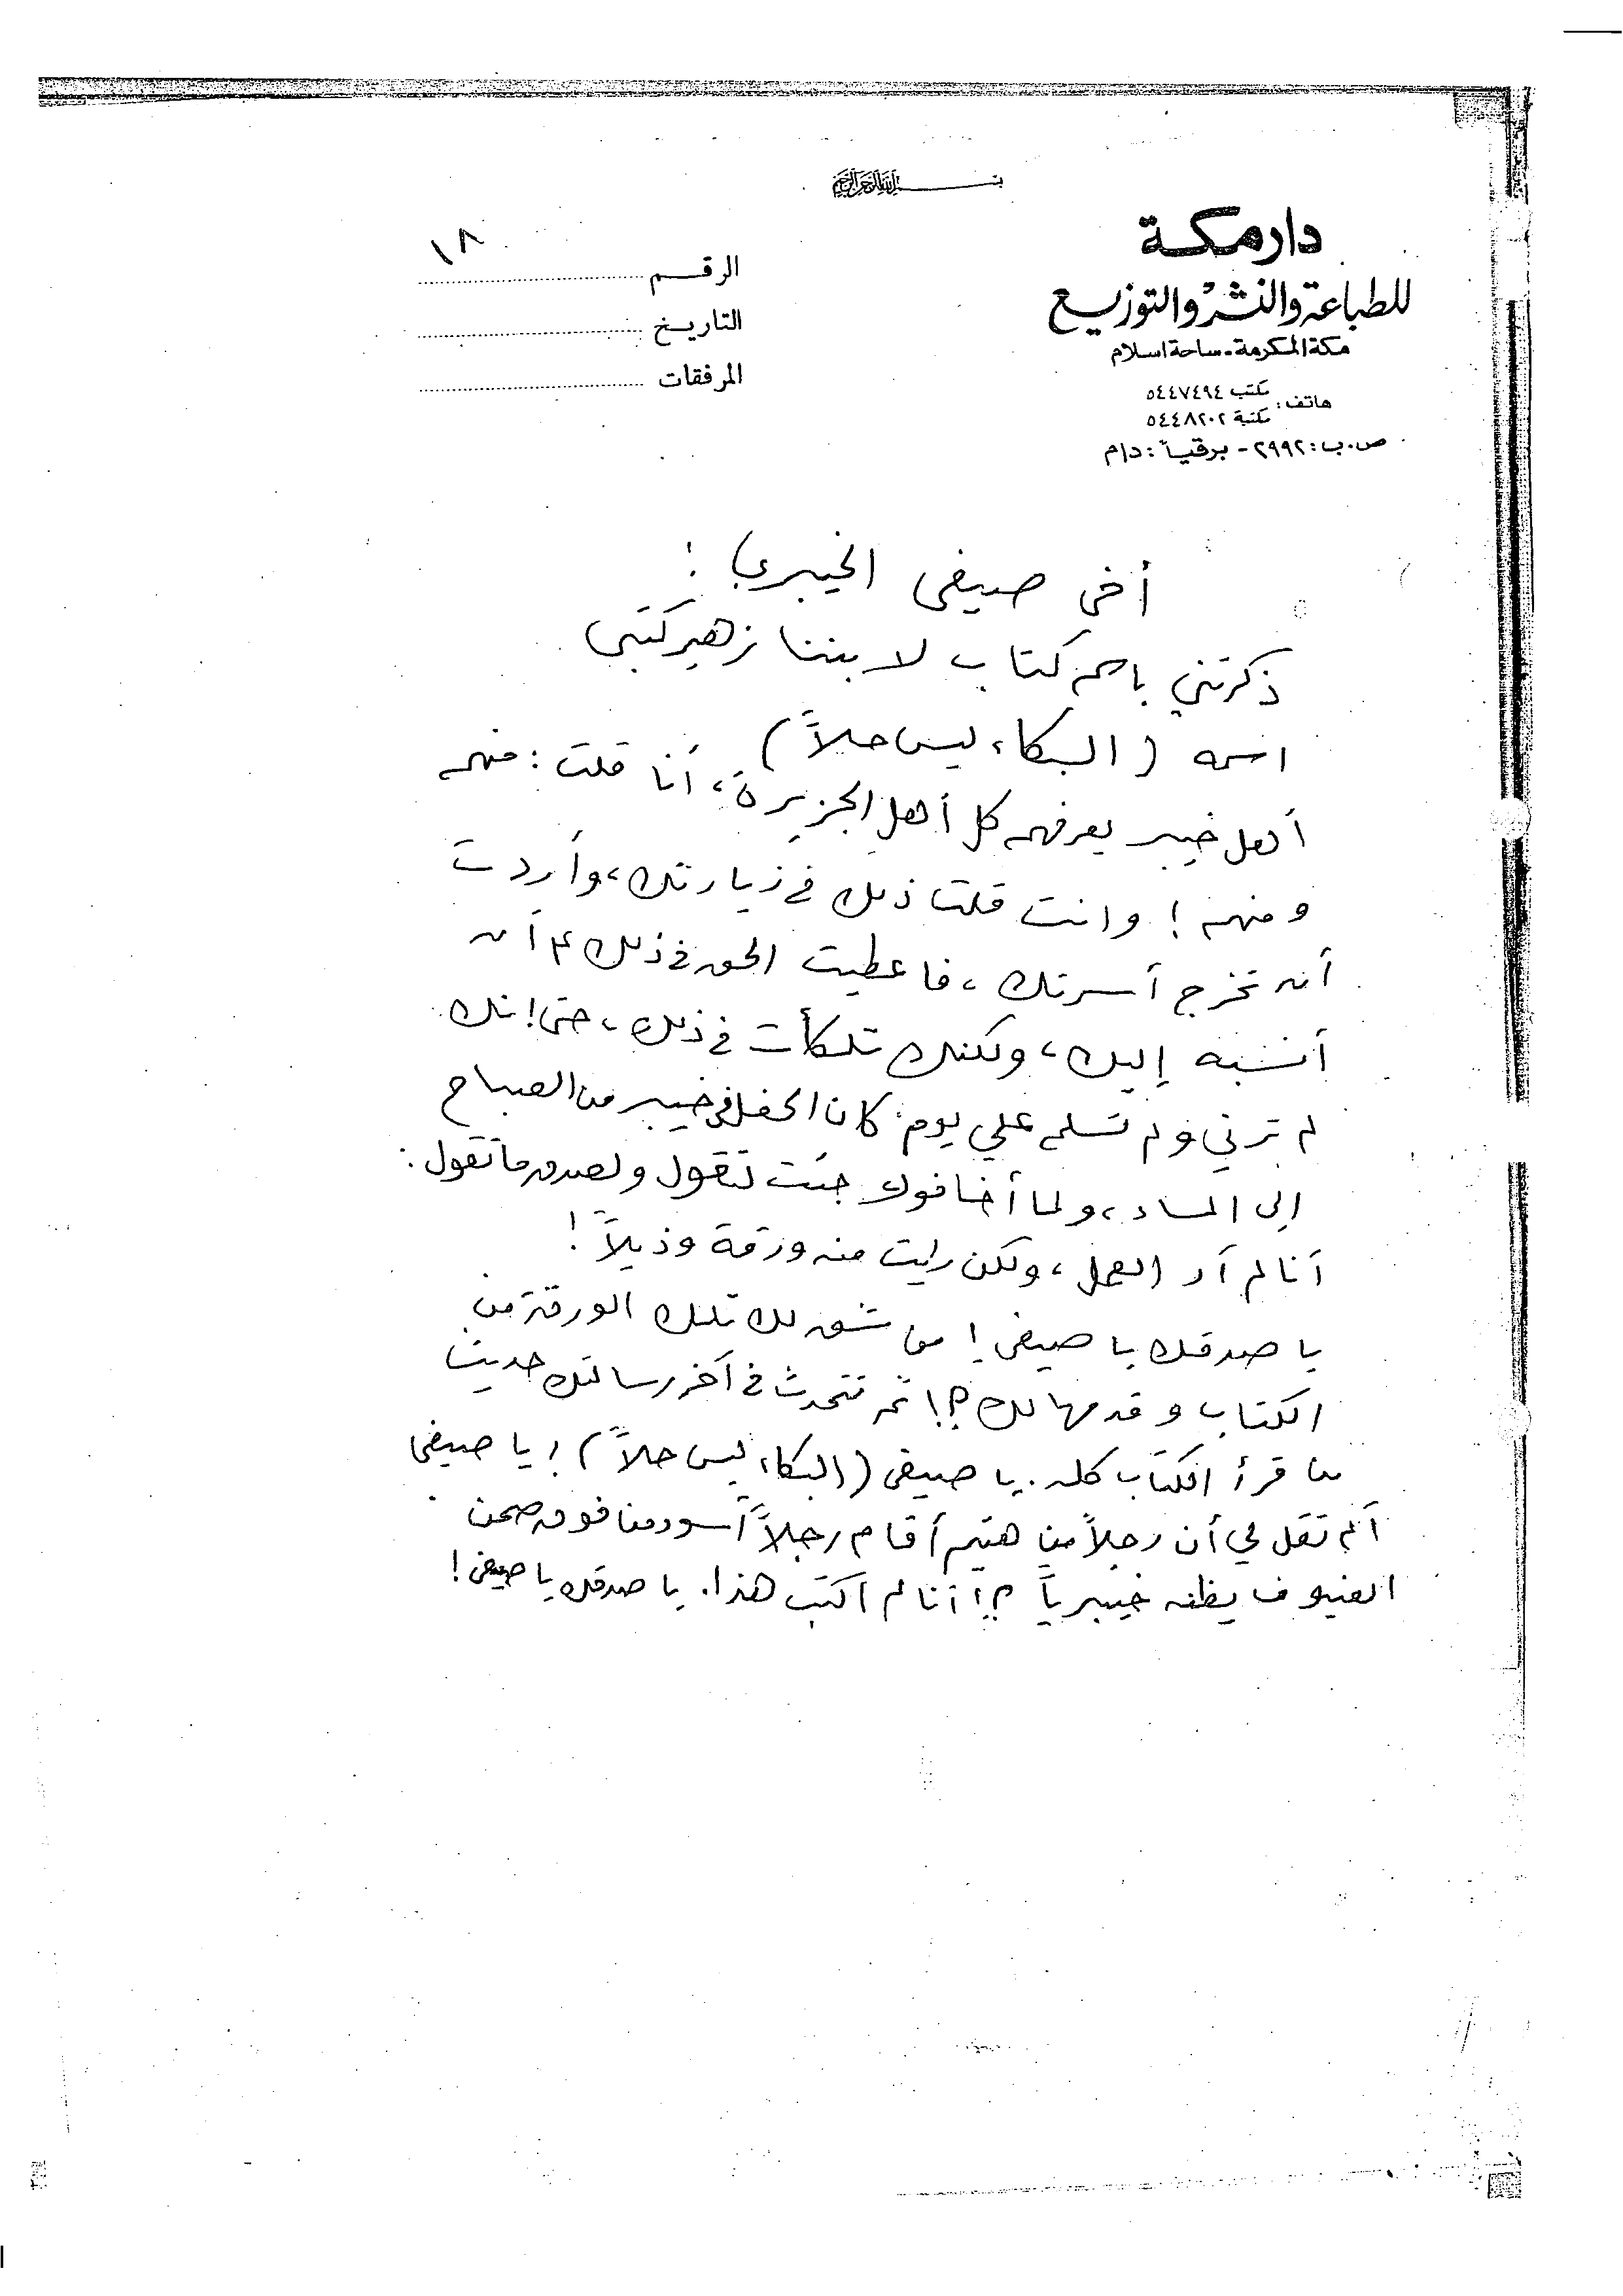 بسم الله الرحمن الرحيم
دار مكة
للطباعة والنشر والتوزيع
مكة المكرمة - ساحة اسلام
هاتف: مكتب ٥٤٤٧٤٩٤
مكتبة ٥٤٤٨٢٠٢
ص.ب: ٢٩٩٢ - برقياً: دام
الرقم ١٨
التاريخ
المرفقات
أخي صيفي الخيبري!
ذكرتني باسم كتاب لابننا زهير كتبي
اسمه (البكاء ليس حلاً)
أهل خيبر يعرفهم كل أهل الجزيرة، أنا قلت: منهم
ومنهم! وانت قلت ذلك في زيارتك، وأردت
أن تخرج أسرتك، فاعطيت الحق في ذلك أن
أنسبه إليك، ولكنك تلكأت في ذلك، حتى إنك
لم ترني ولم تسلم علي يوم كان الحفل في خيبر من الصباح
إلى المساء، ولما أخافوك جئت تقول ولصدق ما تقول:
أنا لم أر العمل، ولكن رايت منه ورقة وذيلاً!
يا صدقك يا صيفي! من شق لك تلك الورقة من
الكتاب وقدمها لك؟! ثم تتحدث في آخر رسالتك حديث
من قرأ الكتاب كله. يا صيفي (البكاء ليس حلاً)! يا صيفي
ألم تقل لي أن رجلاً من هتيم أقام رجلاً أسود من فوق صحن
الضيوف يظنه خيبرياً؟! أنا لم اكتب هذا. يا صدقك يا صيفي!